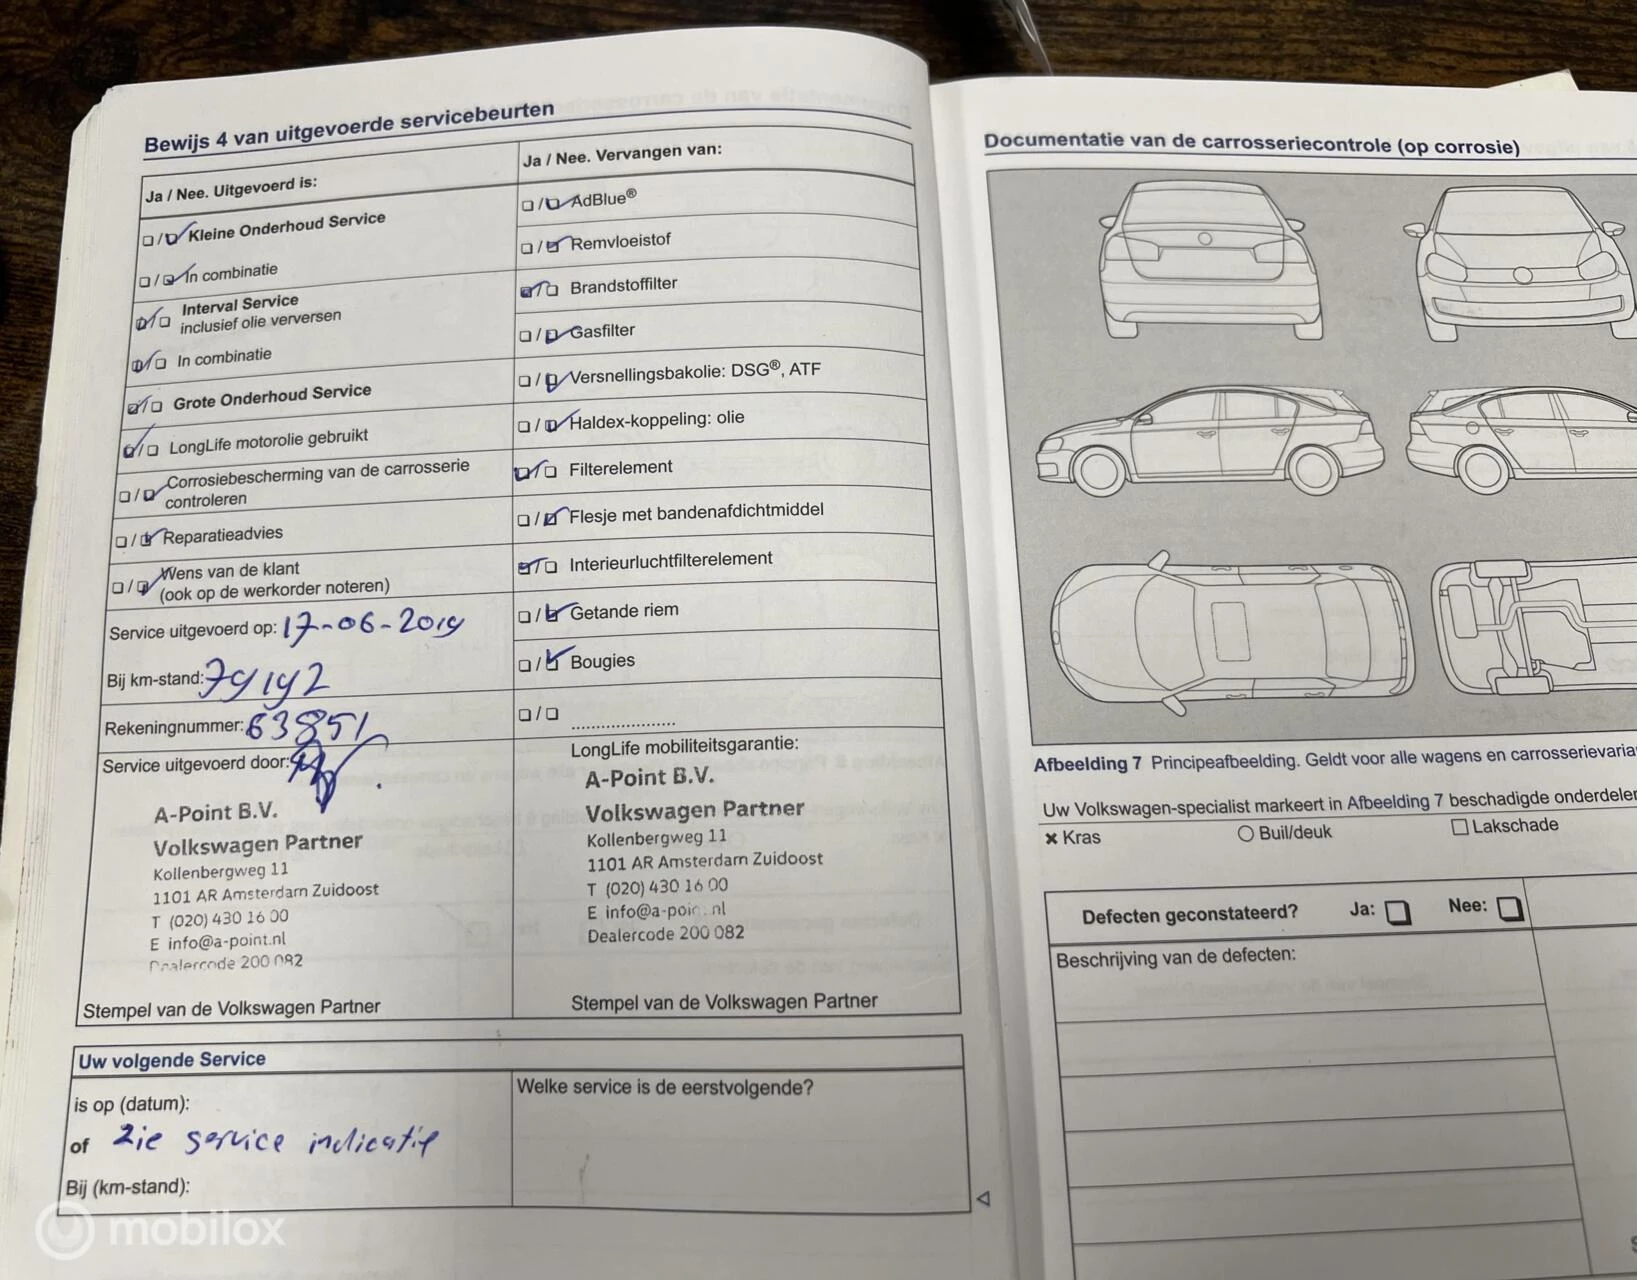 Bewijs 4 van uitgevoerde servicebeurten
Ja / Nee. Uitgevoerd is:
Kleine Onderhoud Service
In combinatie
Interval Service
inclusief olie verversen
In combinatie
Grote Onderhoud Service
LongLife motorolie gebruikt
Corrosiebescherming van de carrosserie
controleren
Reparatieadvies
Wens van de klant
(ook op de werkorder noteren)
Service uitgevoerd op: 17-06-2019
Bij km-stand: 79192
Rekeningnummer: 63851
Service uitgevoerd door:
A-Point B.V.
Volkswagen Partner
Kollenbergweg 11
1101 AR Amsterdam Zuidoost
T (020) 430 16 00
E info@a-point.nl
Dealercode 200 082
Stempel van de Volkswagen Partner
Ja / Nee. Vervangen van:
AdBlue®
Remvloeistof
Brandstoffilter
Gasfilter
Versnellingsbakolie: DSG®, ATF
Haldex-koppeling: olie
Filterelement
Flesje met bandenafdichtmiddel
Interieurluchtfilterelement
Getande riem
Bougies
....................
LongLife mobiliteitsgarantie:
A-Point B.V.
Volkswagen Partner
Kollenbergweg 11
1101 AR Amsterdam Zuidoost
T (020) 430 16 00
E info@a-point.nl
Dealercode 200 082
Stempel van de Volkswagen Partner
Uw volgende Service
is op (datum):
of zie service indicatie
Bij (km-stand):
Welke service is de eerstvolgende?
Documentatie van de carrosseriecontrole (op corrosie)
Afbeelding 7 Principeafbeelding. Geldt voor alle wagens en
Uw Volkswagen-specialist markeert in Afbeelding 7 beschadigde
Kras
Buil/deuk
Lakschade
Defecten geconstateerd? Ja: Nee:
Beschrijving van de defecten:
mobilox